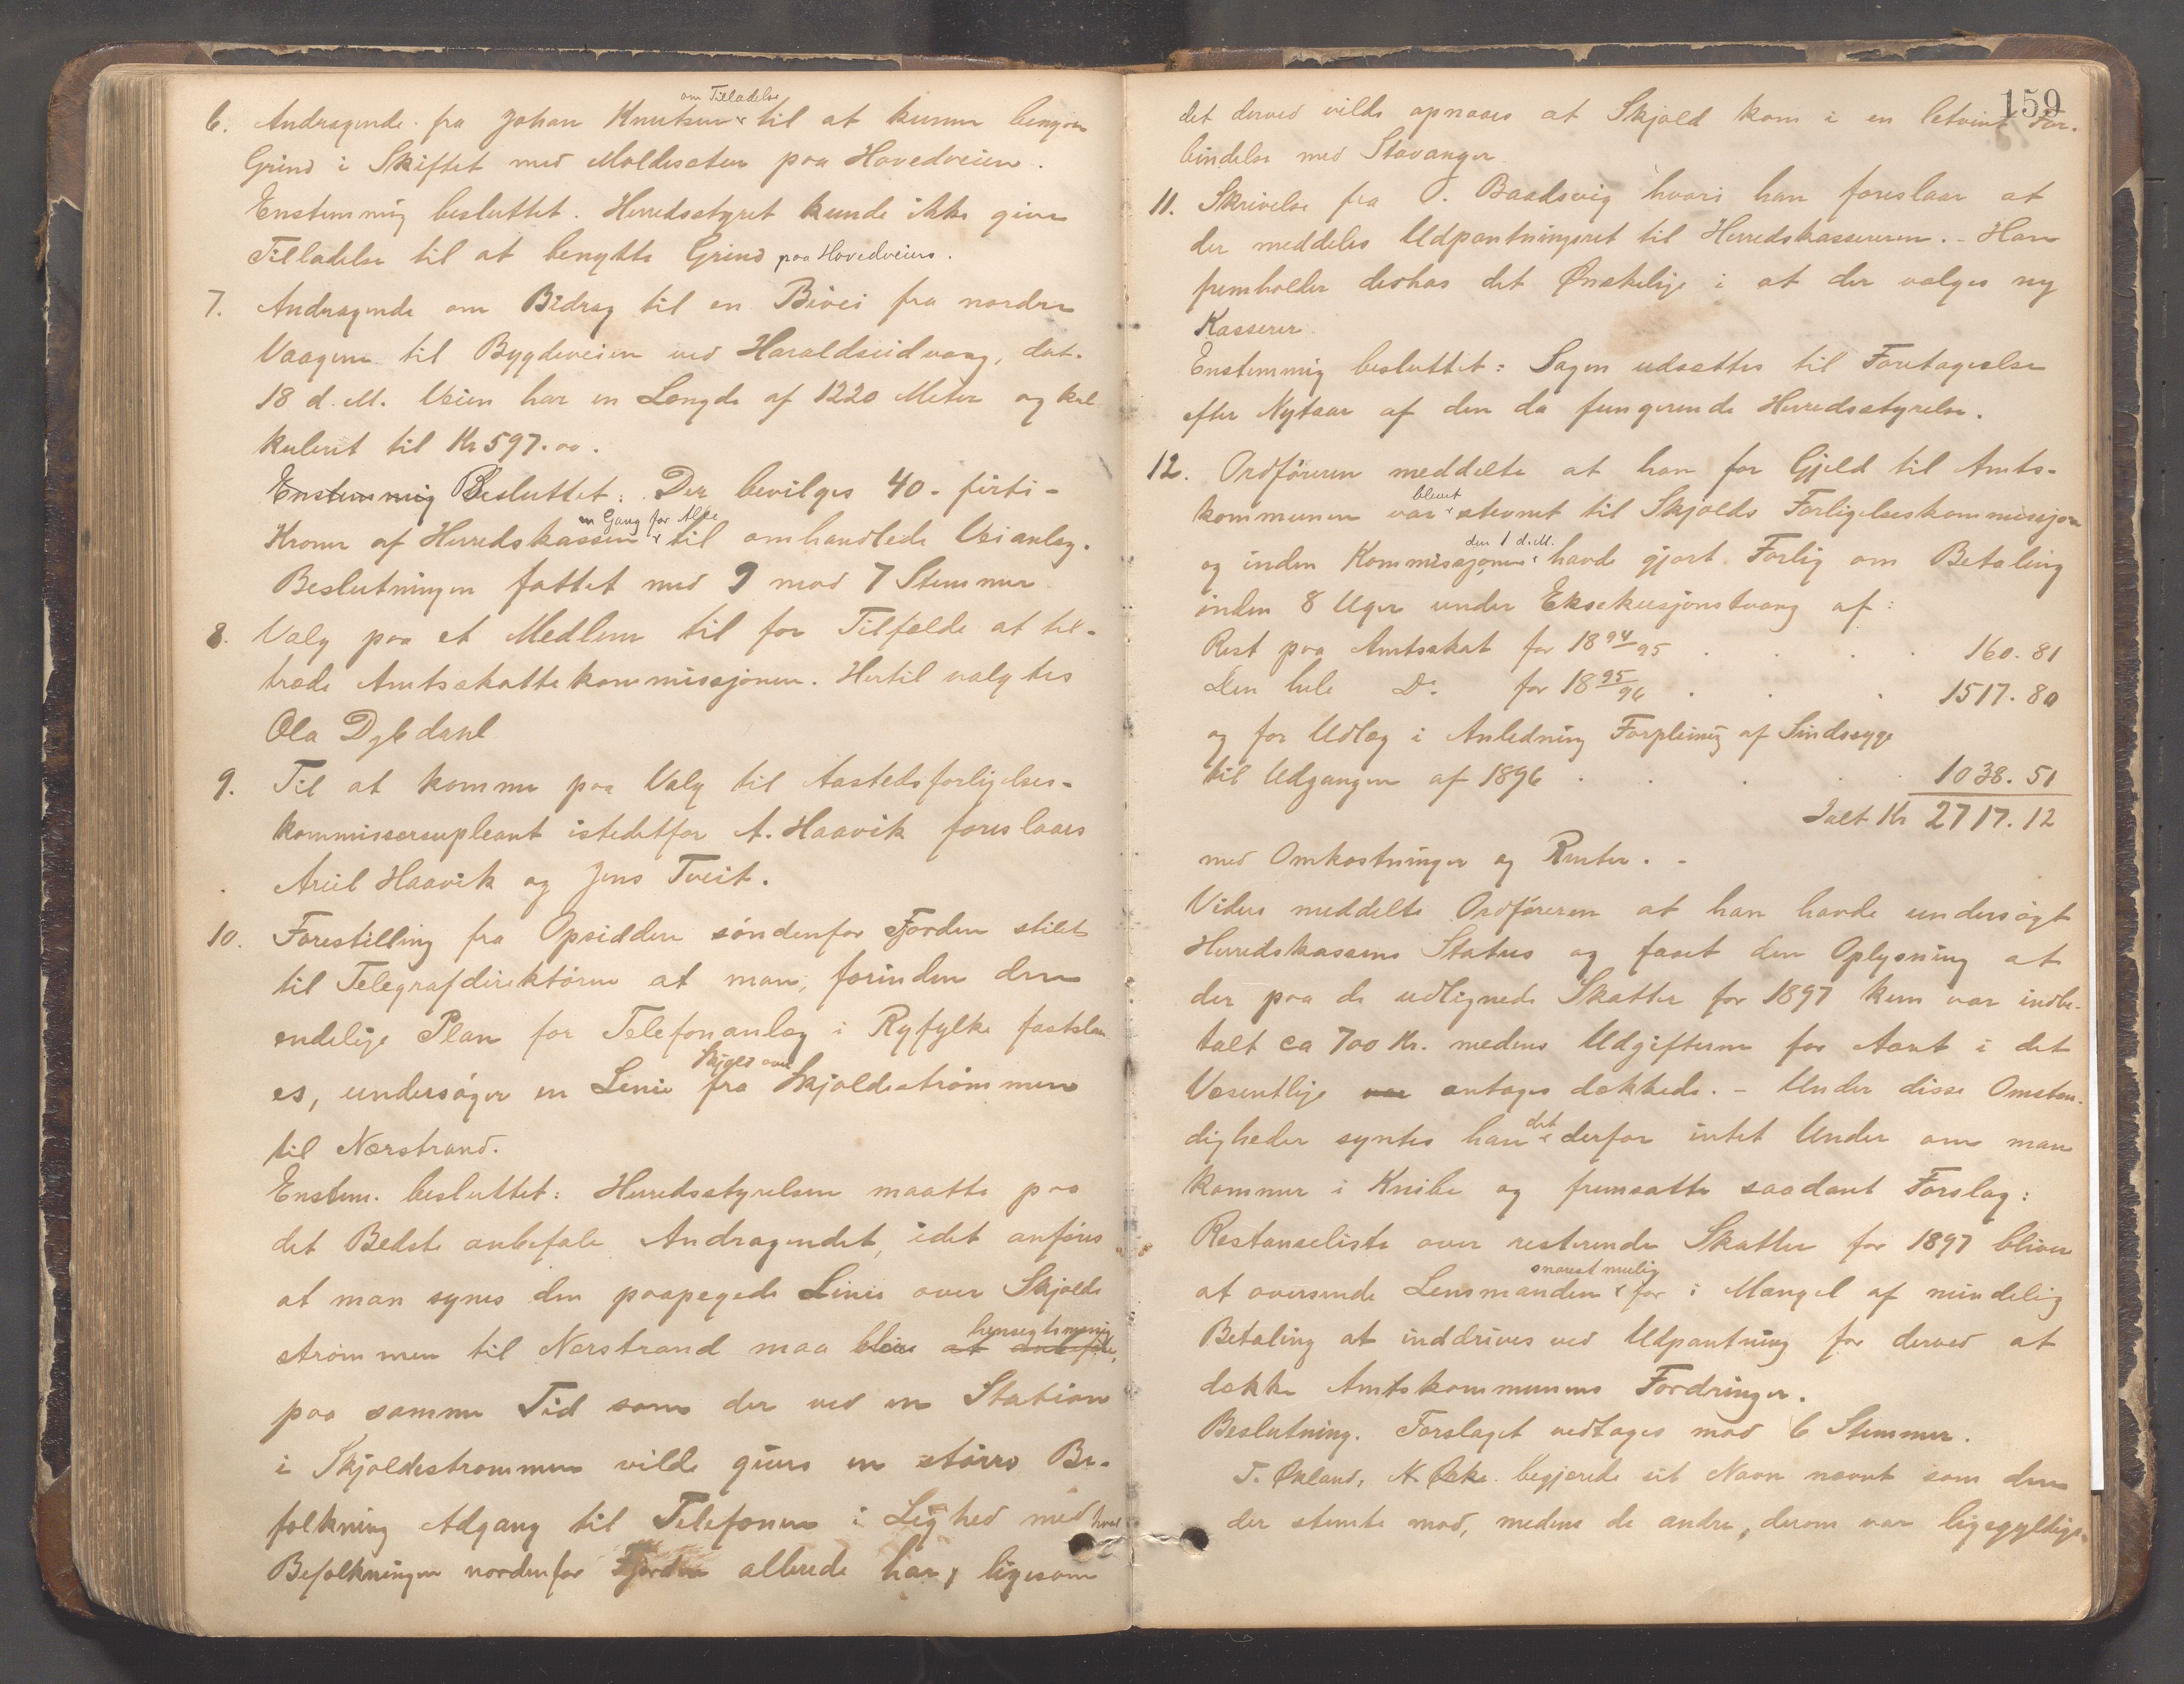 6. Andragende fra Johan Knutsen om Tilladelse til at kunne benytte
Grind i Skiftet med Moldesæter paa Hovedveien.
Enstemmig besluttet. Herredsstyret kunde ikke give
Tilladelse til at benytte Grind paa Hovedveien.
7. Andragende om Bidrag til en Bivei fra nordre
Vaagen til Bygdeveien ved Haraldseidvaag, dat.
18 d. M. Veien har en Længde af 1220 Meter og kal
kulert til Kr 597.00.
Enstemmig Besluttet: Der bevilges 40 - firti -
Kroner af Herredskassen en Gang for Alle til omhandlede Veianlæg.
Beslutningen fattet med 9 mod 7 Stemmer
8. Valg paa et Medlem til for Tilfælde at til-
træde Amtsskattekommissjonen. Hertil valgtes
Ola Dybdahl
9. Til at komme paa Valg til Aastedsforligelses-
kommissærsupleant istedetfor A. Haavik foreslaaes
Areil Haavik og Jens Tveit.
10. Forestilling fra Opsiddere søndenfor Fjorden stilet
til Telegrafdirektøren at man, forinden den
endelige Plan for Telefonanlæg i Ryfylke fastsla
es, undersøger en Linie fra Skjold over Skjoldestrømmen
til Nærstrand.
Enstem. besluttet: Herredsstyrelsen maatte paa
det Bedste anbefale Andragendet, idet anføres
at man synes den paapegede Linie over Skjolde
strømmen til Nærstrand maa blive at anbefale, hensegtsmæsig
paa samme Tid som der ved en Station
i Skjoldestrømmen vilde gives en større Be-
folkning Adgang til Telefonen i Lighed med hvad
Befolkningen nordenfor Fjorden allerede har, ligesom
159
det derved vilde opnaaes at Skjold kom i en letvint For-
bindelse med Stavanger
11. Skrivelse fra O. Baadsvig hvori han foreslaar at
der meddeles Udpantningsret til Herredskassereren. - Han
fremholder deshos det Ønskelige i at der vælges ny
Kasserer
Enstemmig besluttet: Sagen udsættes til Foretagelse
efter Nytaar af den da fungerende Herredsstyrelse.
12. Ordføreren meddelte at han for Gjeld til Amts-
kommunen var blevet stevnet til Skjolds Forligelseskommissjon
og inden Kommissjonen den 1 d. M. havde gjort Forlig om Betaling
inden 8 Uger under Eksekusjonstvang af:
Rest paa Amtsskat for 18 94/95 . . . . 160.81
Den hele Do. for 18 95/96 . . . 1517.80
og for Udlæg i Anledning Forpleining af Sindssyge
til Udgangen af 1896 . . . . . 1038.51
Ialt Kr 2717.12
med Omkostninger og Renter. -
Videre meddelte Ordføreren at han havde undersøgt
Herredskassens Status og faaet den Oplysning at
der paa de udlignede Skatter for 1897 kun var indbe-
talt ca 700 Kr. medens Udgifterne for Aaret i det
Væsentlige var antages dækkede. - Under disse Omstæn-
digheder syntes han det derfor intet Under om man
kommer i Knibe og fremsatte saadant Forslag:
Restanseliste over resterende Skatter for 1897 bliver
at oversende Lensmanden snarest mulig for i Mangel af mindelig
Betaling at inddrives ved Udpantning for derved at
dække Amtskommunens Fordringer.
Beslutning. Forslaget vedtages mod 6 Stemmer.
T. Økland, N. begjærede sit Navn nævnt som den
der stemte mod, medens de andre, derom var ligegyldige.